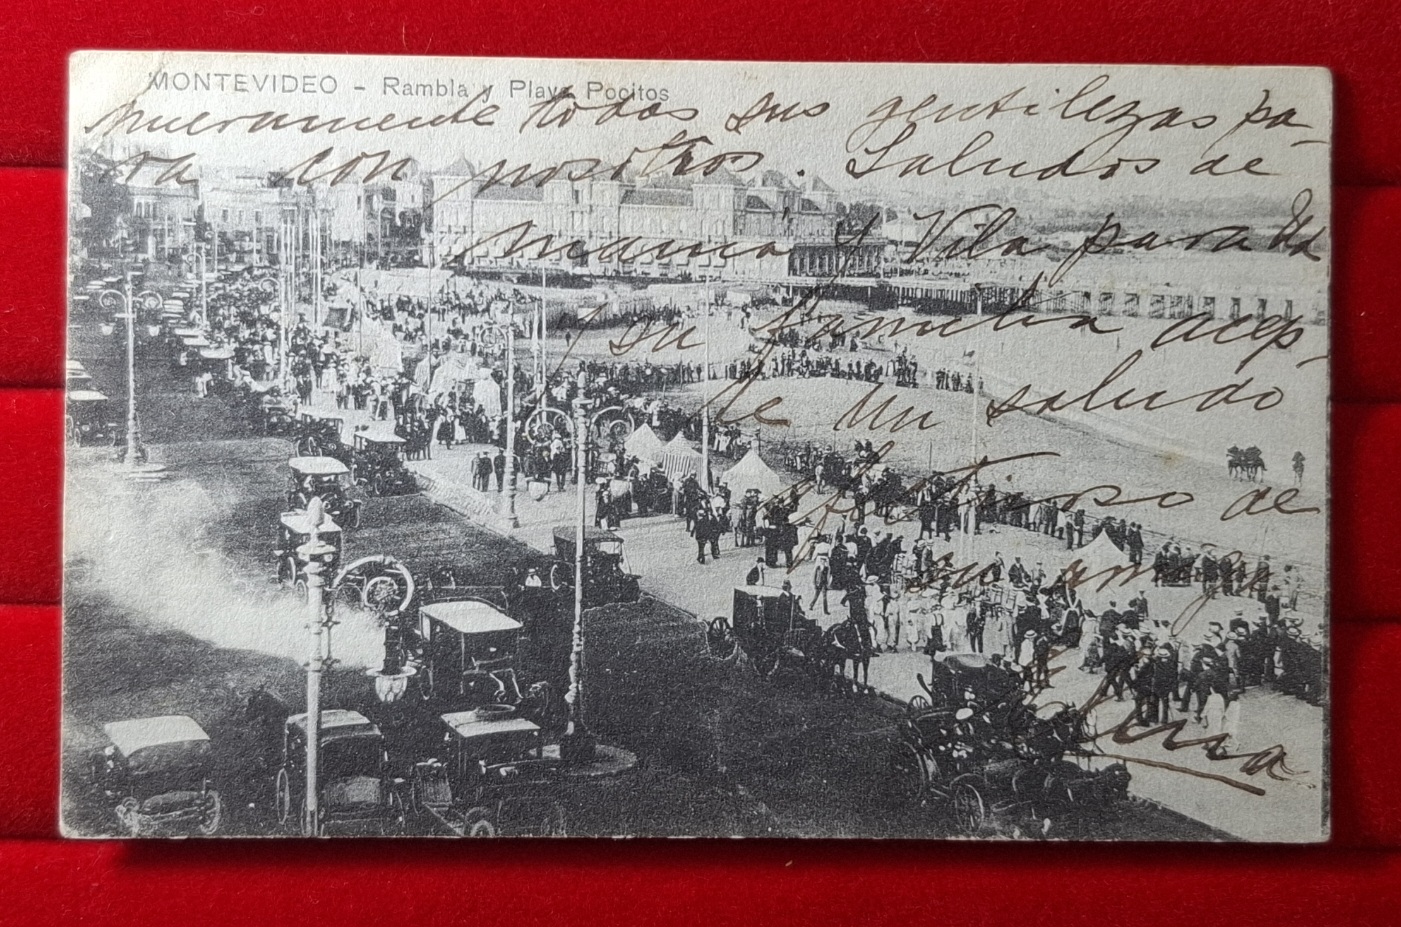 MONTEVIDEO – Rambla y Playa Pocitos
nuevamente todas sus gentilezas pa-
ra con nosotros. Saludos de
mamá y Vila para Ud
y su familia acep-
te un saludo
afectuoso de
su amiga
Elvira